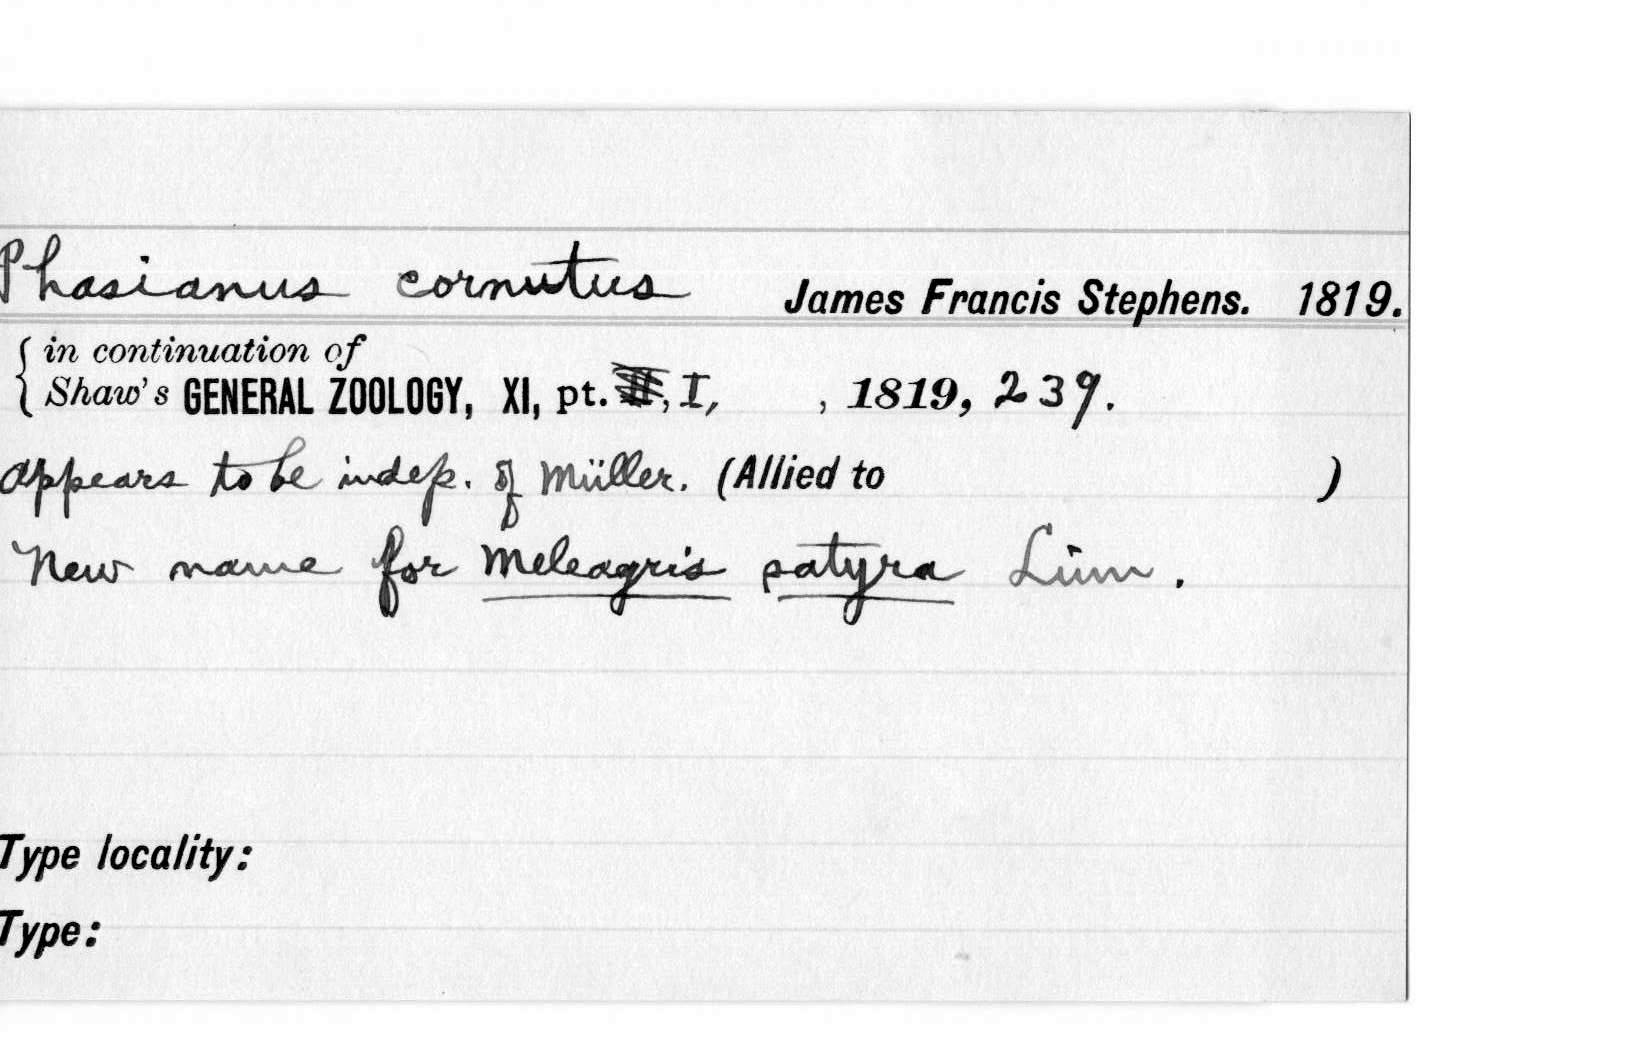 Phasianus cornutus James Francis Stephens. 1819.
in continuation of
Shaw's GENERAL ZOOLOGY, XI, pt. I, , 1819, 239.
appears to be indep. of Müller. (Allied to )
New name for Meleagris satyra Linn.
Type locality:
Type: